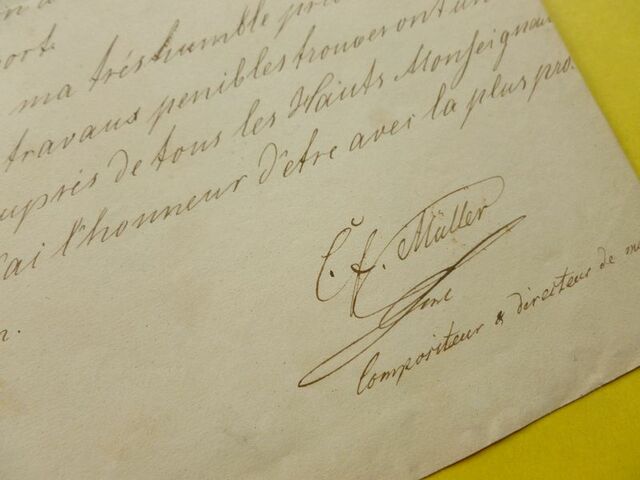 ort.
ma très humble pri
travaux penibles trouveront un
uprés de tous les Hauts Monseigneu
'ai l'honneur d'etre avec la plus pro
C. F. Müller
Compositeur & directeur de mu